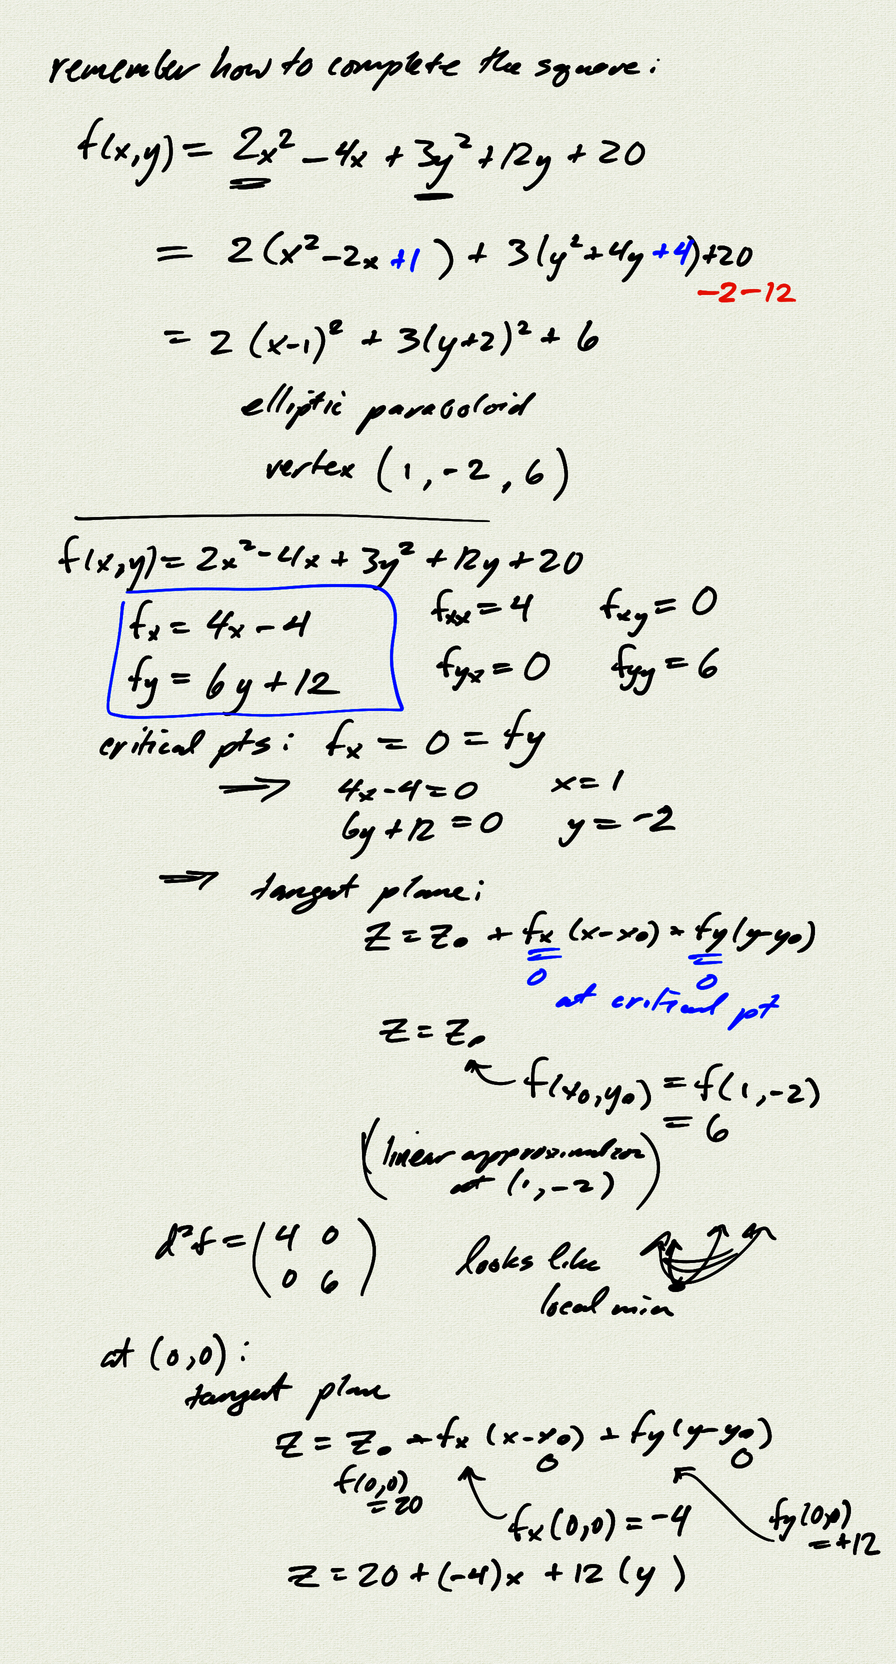 remember how to complete the square:
f(x,y) = 2x² - 4x + 3y² + 12y + 20
= 2(x² - 2x +1 ) + 3(y² + 4y +4) + 20
-2-12
= 2(x-1)² + 3(y+2)² + 6
elliptic paraboloid
vertex (1, -2, 6)
f(x,y) = 2x² - 4x + 3y² + 12y + 20
fx = 4x - 4 fxx = 4 fxy = 0
fy = 6y + 12 fyx = 0 fyy = 6
critical pts: fx = 0 = fy
⟹ 4x-4=0 x=1
6y+12=0 y=-2
⟹ tangent plane:
z = z₀ + fx (x-x₀) + fy (y-y₀)
0 0
at critical pt
z = z₀
f(x₀,y₀) = f(1,-2)
= 6
(linear approximation
at (1,-2))
d²f = (4 0
0 6) looks like
local min
at (0,0):
tangent plane
z = z₀ + fx (x-x₀) + fy (y-y₀)
0 0
f(0,0)
= 20
fx(0,0) = -4 fy(0,0)
= +12
z = 20 + (-4)x + 12(y)